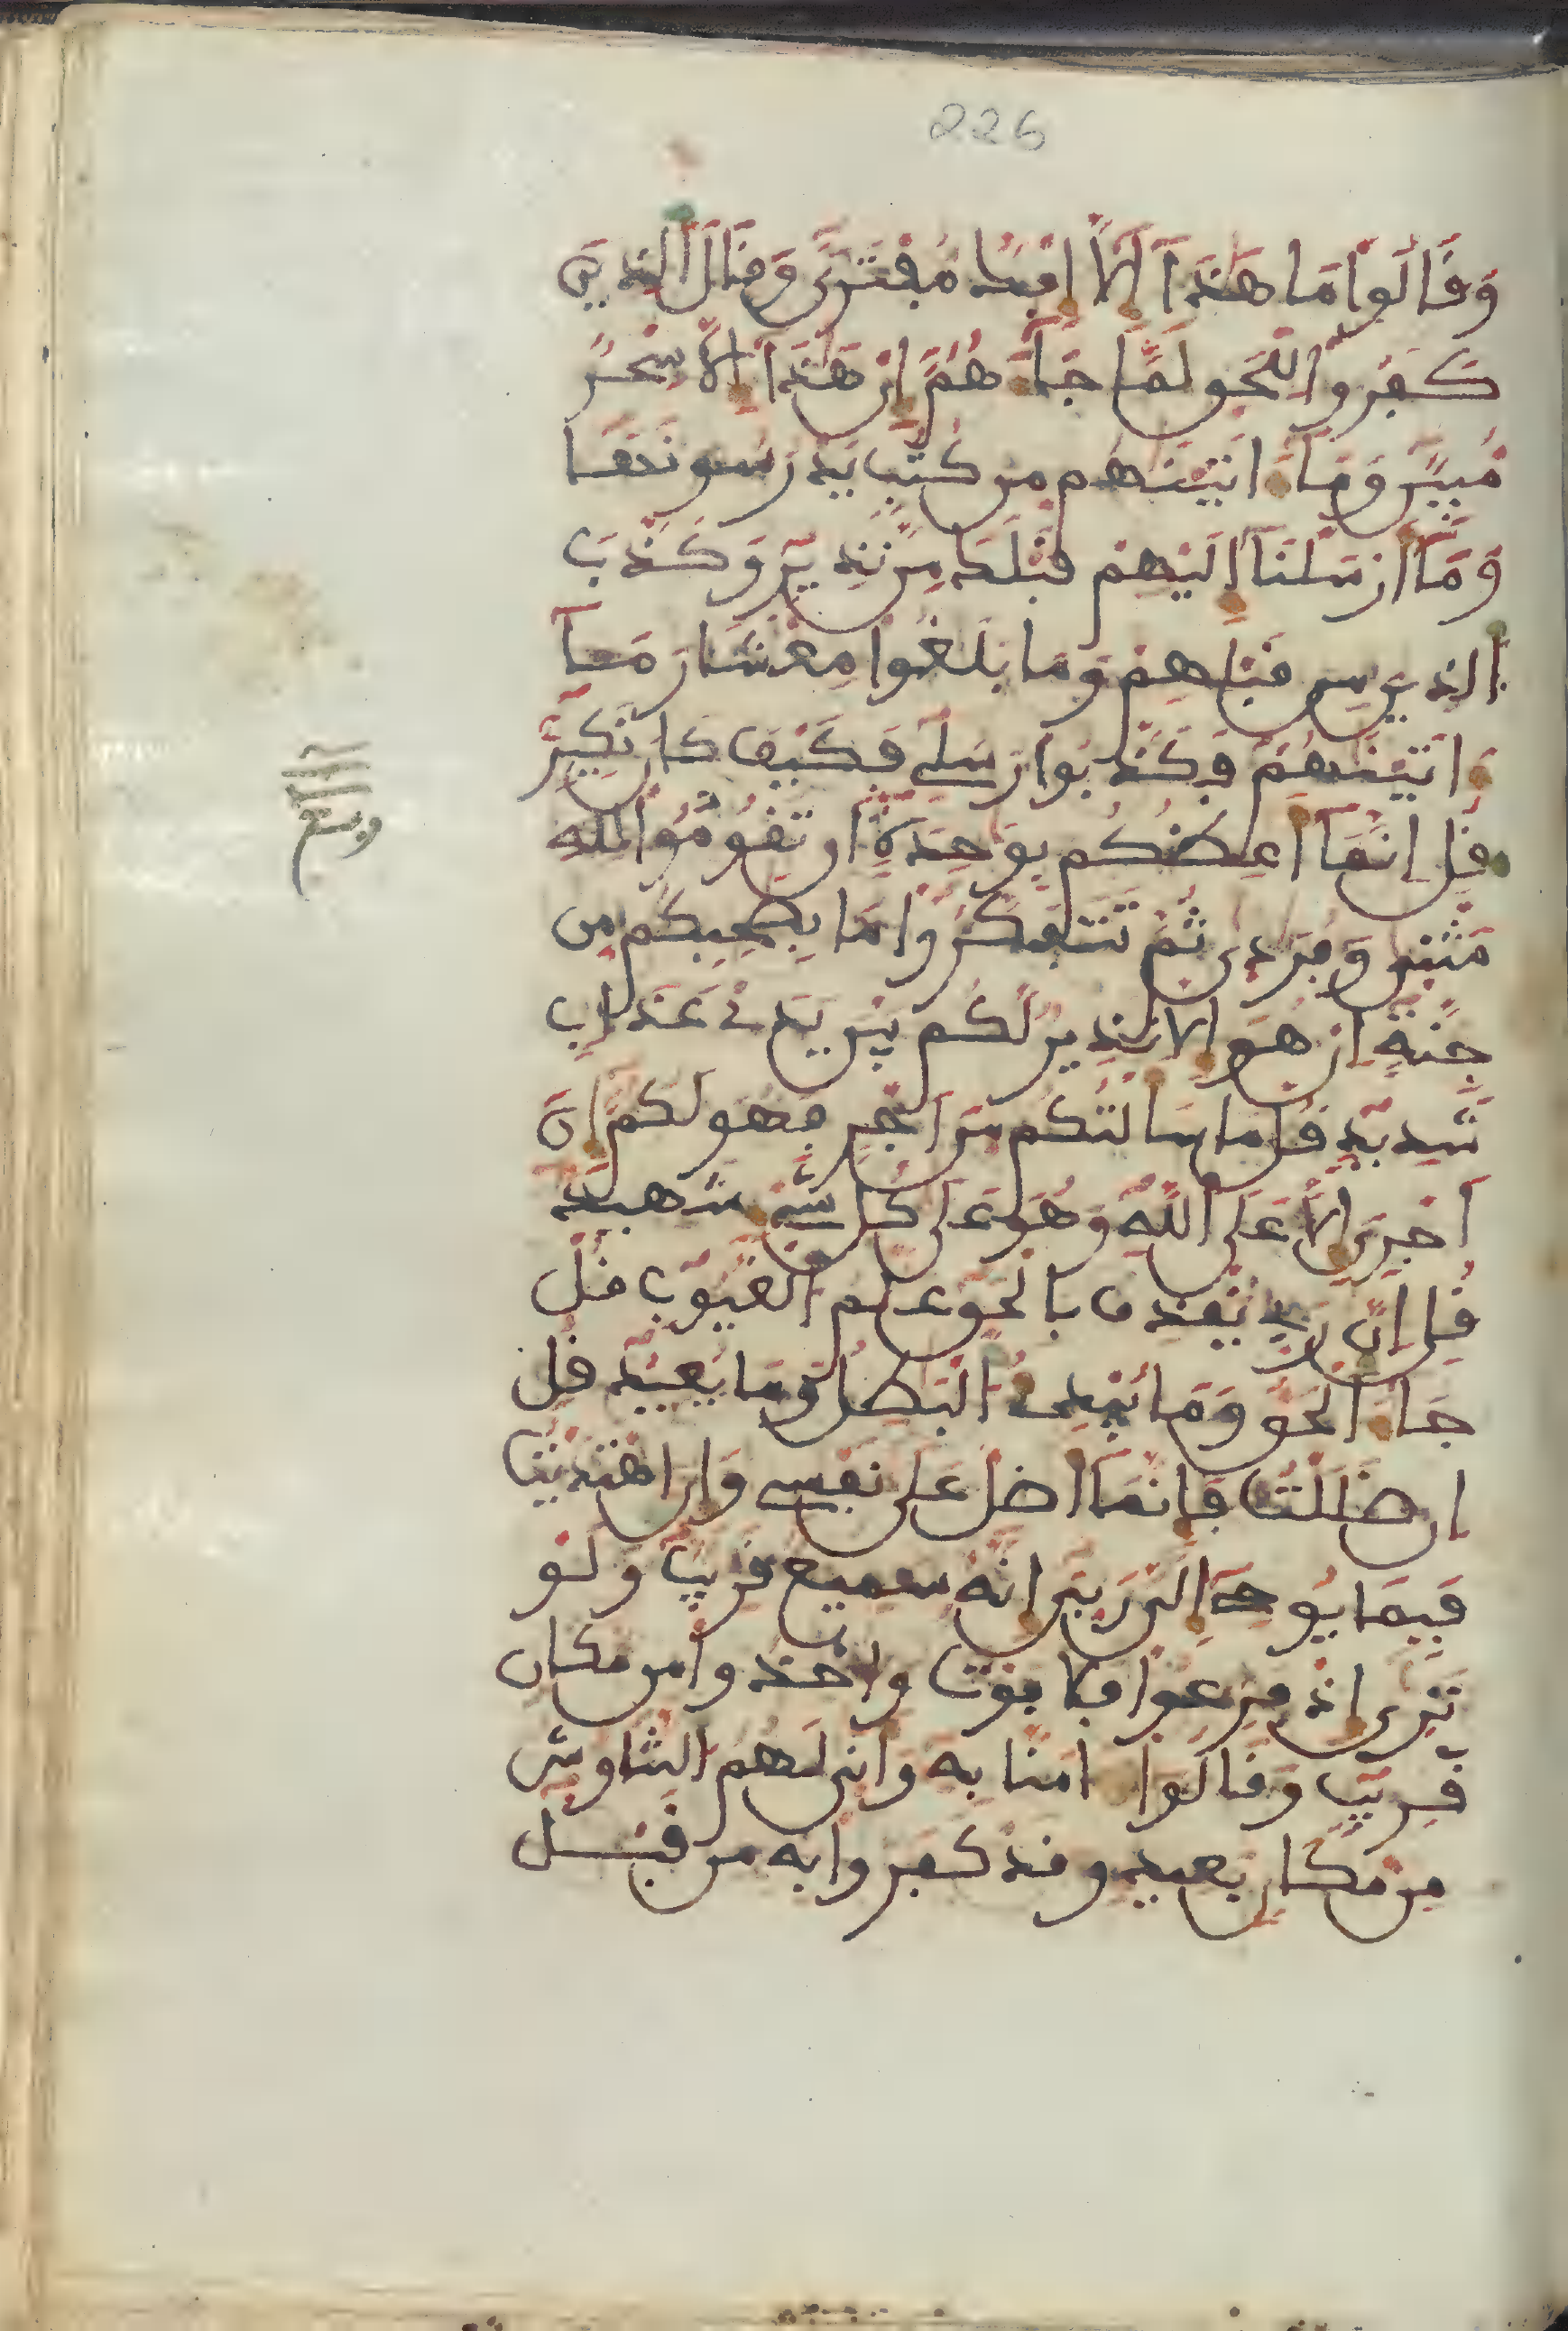 226
وَقَالُوا مَا هَٰذَا إِلَّا إِفْكٌ مُفْتَرًى وَقَالَ الذِينَ
كَفَرُوا لِلْحَقِّ لَمَّا جَآءَهُمْ إِنْ هَٰذَا إِلَّا سِحْرٌ
مُبِينٌ وَمَآ ءَاتَيْنَٰهُم مِن كُتُبٍ يَدْرُسُونَهَا
وَمَآ أَرْسَلْنَآ إِلَيْهِمْ قَبْلَكَ مِن نَذِيرٍ وَكَذَّبَ
الذِينَ مِن قَبْلِهِمْ وَمَا بَلَغُوا مِعْشَارَ مَآ
ءَاتَيْنَٰهُمْ فَكَذَّبُوا رُسُلِي فَكَيْفَ كَانَ نَكِيرِ
قُلْ إِنَّمَآ أَعِظُكُم بِوَٰحِدَةٍ أَن تَقُومُوا لِلهِ
مَثْنَىٰ وَفُرَٰدَىٰ ثُمَّ تَتَفَكَّرُوا مَا بِصَٰحِبِكُم مِن
جِنَّةٍ إِنْ هُوَ إِلَّا نَذِيرٌ لَكُم بَيْنَ يَدَيْ عَذَابٍ
شَدِيدٍ قُلْ مَا سَأَلْتُكُم مِنْ أَجْرٍ فَهُوَ لَكُمْ إِنْ
أَجْرِيَ إِلَّا عَلَى اللهِ وَهُوَ عَلَىٰ كُلِّ شَيْءٍ شَهِيدٌ
قُلْ إِنَّ رَبِّي يَقْذِفُ بِالْحَقِّ عَلَّٰمُ الْغُيُوبِ قُلْ
جَآءَ الْحَقُّ وَمَا يُبْدِئُ الْبَٰطِلُ وَمَا يُعِيدُ قُلْ
إِن ضَلَلْتُ فَإِنَّمَآ أَضِلُّ عَلَىٰ نَفْسِي وَإِنِ اهْتَدَيْتُ
فَبِمَا يُوحِي إِلَيَّ رَبِّيَ إِنَّهُ سَمِيعٌ قَرِيبٌ وَلَوْ
تَرَىٰ إِذْ فَزِعُوا فَلَا فَوْتَ وَأُخِذُوا مِن مَكَانٍ
قَرِيبٍ وَقَالُوا ءَامَنَّا بِهِ وَأَنَّىٰ لَهُمُ التَّنَاوُشُ
مِن مَكَانٍ بَعِيدٍ وَقَدْ كَفَرُوا بِهِ مِن قَبْلُ